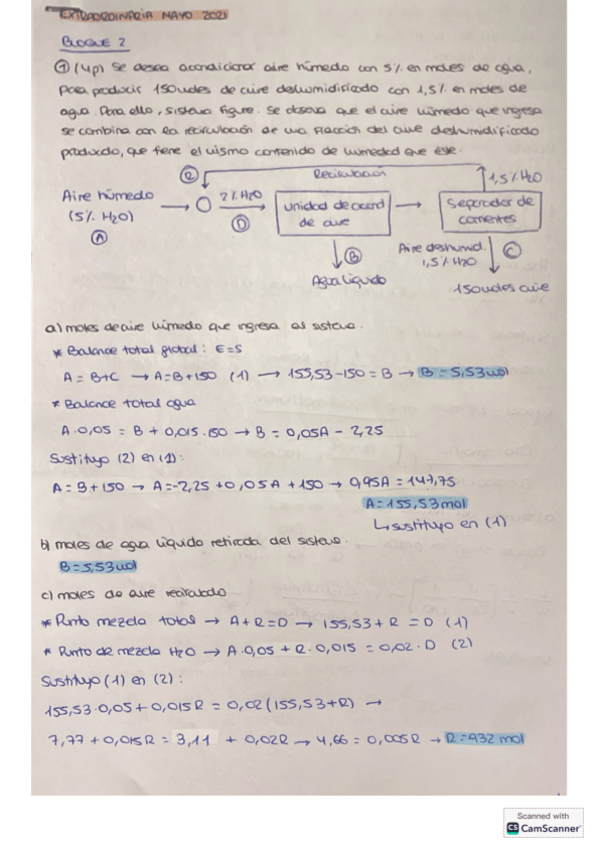 EXTRAORDINARIA MAYO 2021
BLOQUE 2
① (4p) Se desea acondicionar aire húmedo con 5% en moles de agua,
para producir 150 moles de aire deshumidificado con 1,5% en moles de
agua. Para ello, sistema figura. Se observa que el aire húmedo que ingresa
se combina con la recirculación de una fracción del aire deshumidificado
producido, que tiene el mismo contenido de humedad que éste.
R
Recirculación
1,5% H2O
Aire húmedo
(5% H2O)
A
2% H2O
D
Unidad de acond
de aire
Separador de
corrientes
B
Agua líquido
Aire deshumid.
1,5% H2O
C
150 moles aire
a) moles de aire húmedo que ingresa al sistema.
* Balance total global: E=S
A = B+C → A=B+150 (1) → 155,53-150 = B → B=5,53mol
* Balance total agua
A·0,05 = B + 0,015·150 → B = 0,05A - 2,25
Sustituyo (2) en (1):
A = B+150 → A=-2,25+0,05A+150 → 0,95A=147,75
A=155,53mol
↳ sustituyo en (1)
b) moles de agua líquido retirada del sistema.
B=5,53mol
c) moles de aire recirculado
* Punto mezcla total → A+R=D → 155,53+R = D (1)
* Punto de mezcla H2O → A·0,05 + R·0,015 = 0,02·D (2)
Sustituyo (1) en (2):
155,53·0,05+0,015R = 0,02(155,53+R) →
7,77+0,015R = 3,11 + 0,02R → 4,66 = 0,005R → R=932 mol
Scanned with
CS CamScanner